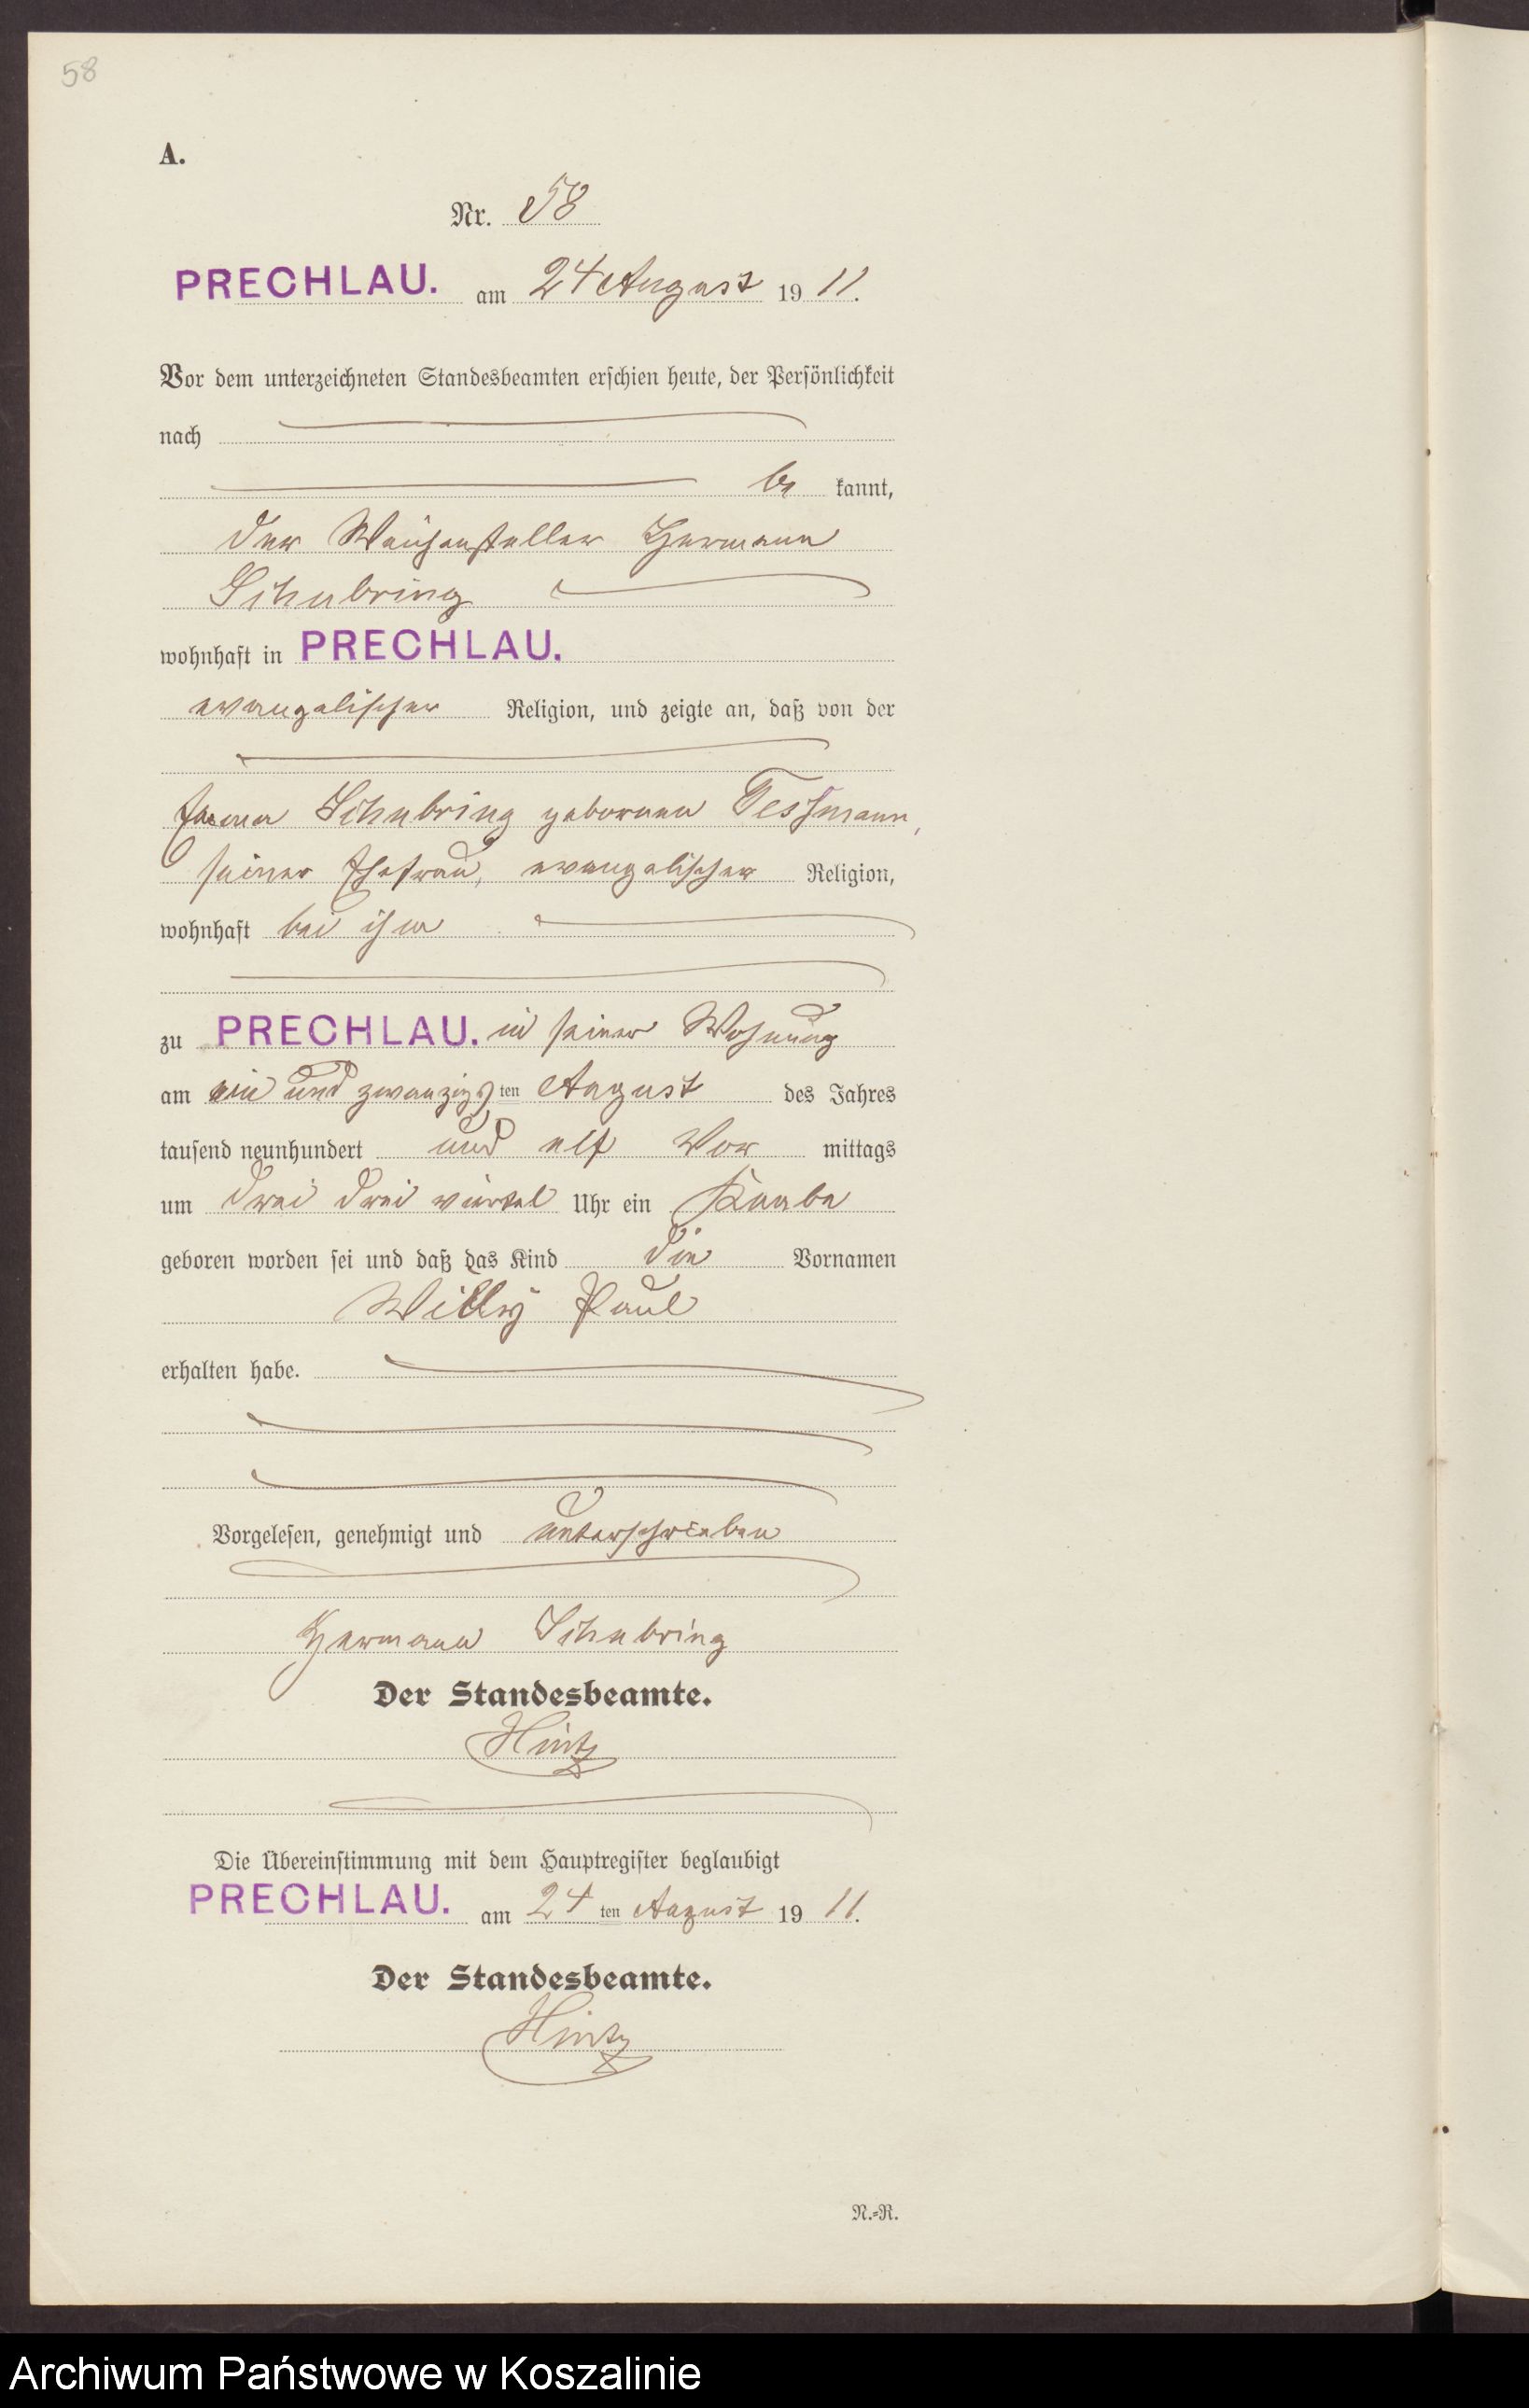 58
A.
Nr. 58
PRECHLAU. am 24 August 19 11.
Vor dem unterzeichneten Standesbeamten erschien heute, der Persönlichkeit
nach
be kannt,
der Weichensteller Hermann
Schubring
wohnhaft in PRECHLAU.
evangelischer Religion, und zeigte an, daß von der
Schubring geborenen Tessmann,
seiner Ehefrau, evangelischer Religion,
wohnhaft bei ihm
zu PRECHLAU. in seiner Wohnung
am ein und zwanzigs ten August des Jahres
tausend neunhundert und elf Vor mittags
um drei drei viertel Uhr ein Knabe
geboren worden sei und daß das Kind die Vornamen
Willy Paul
erhalten habe.
Vorgelesen, genehmigt und unterschrieben
Hermann Schubring
Der Standesbeamte.
Hintz
Die Übereinstimmung mit dem Hauptregister beglaubigt
PRECHLAU. am 24 ten August 19 11.
Der Standesbeamte.
Hintz
N.=R.
Archiwum Państwowe w Koszalinie